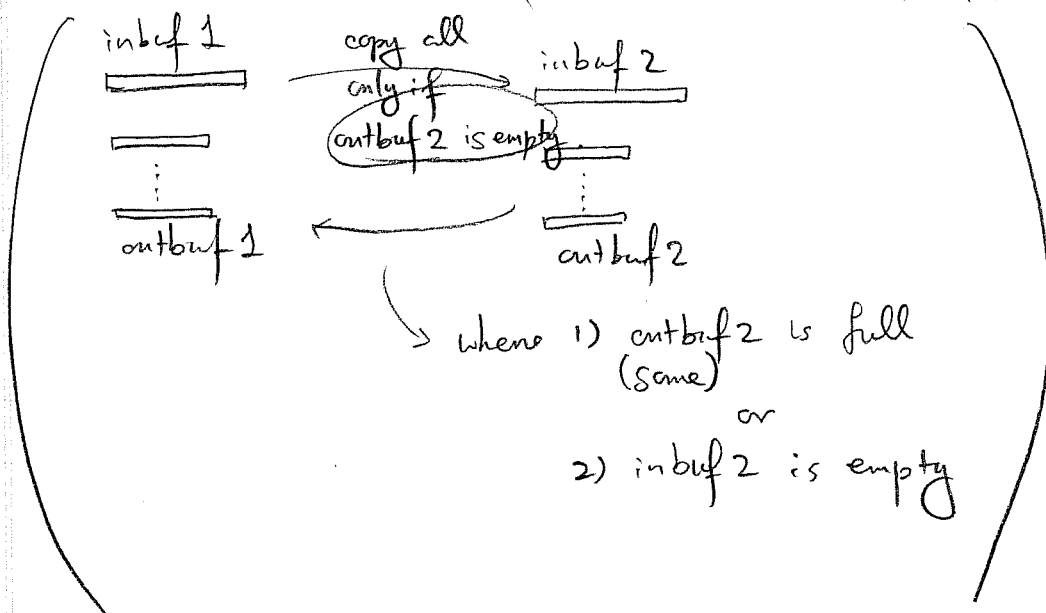 inbuf 1
copy all
only if
outbuf 2 is empty
inbuf 2
outbuf 1
outbuf 2
where 1) outbuf 2 is full
(same)
or
2) inbuf 2 is empty